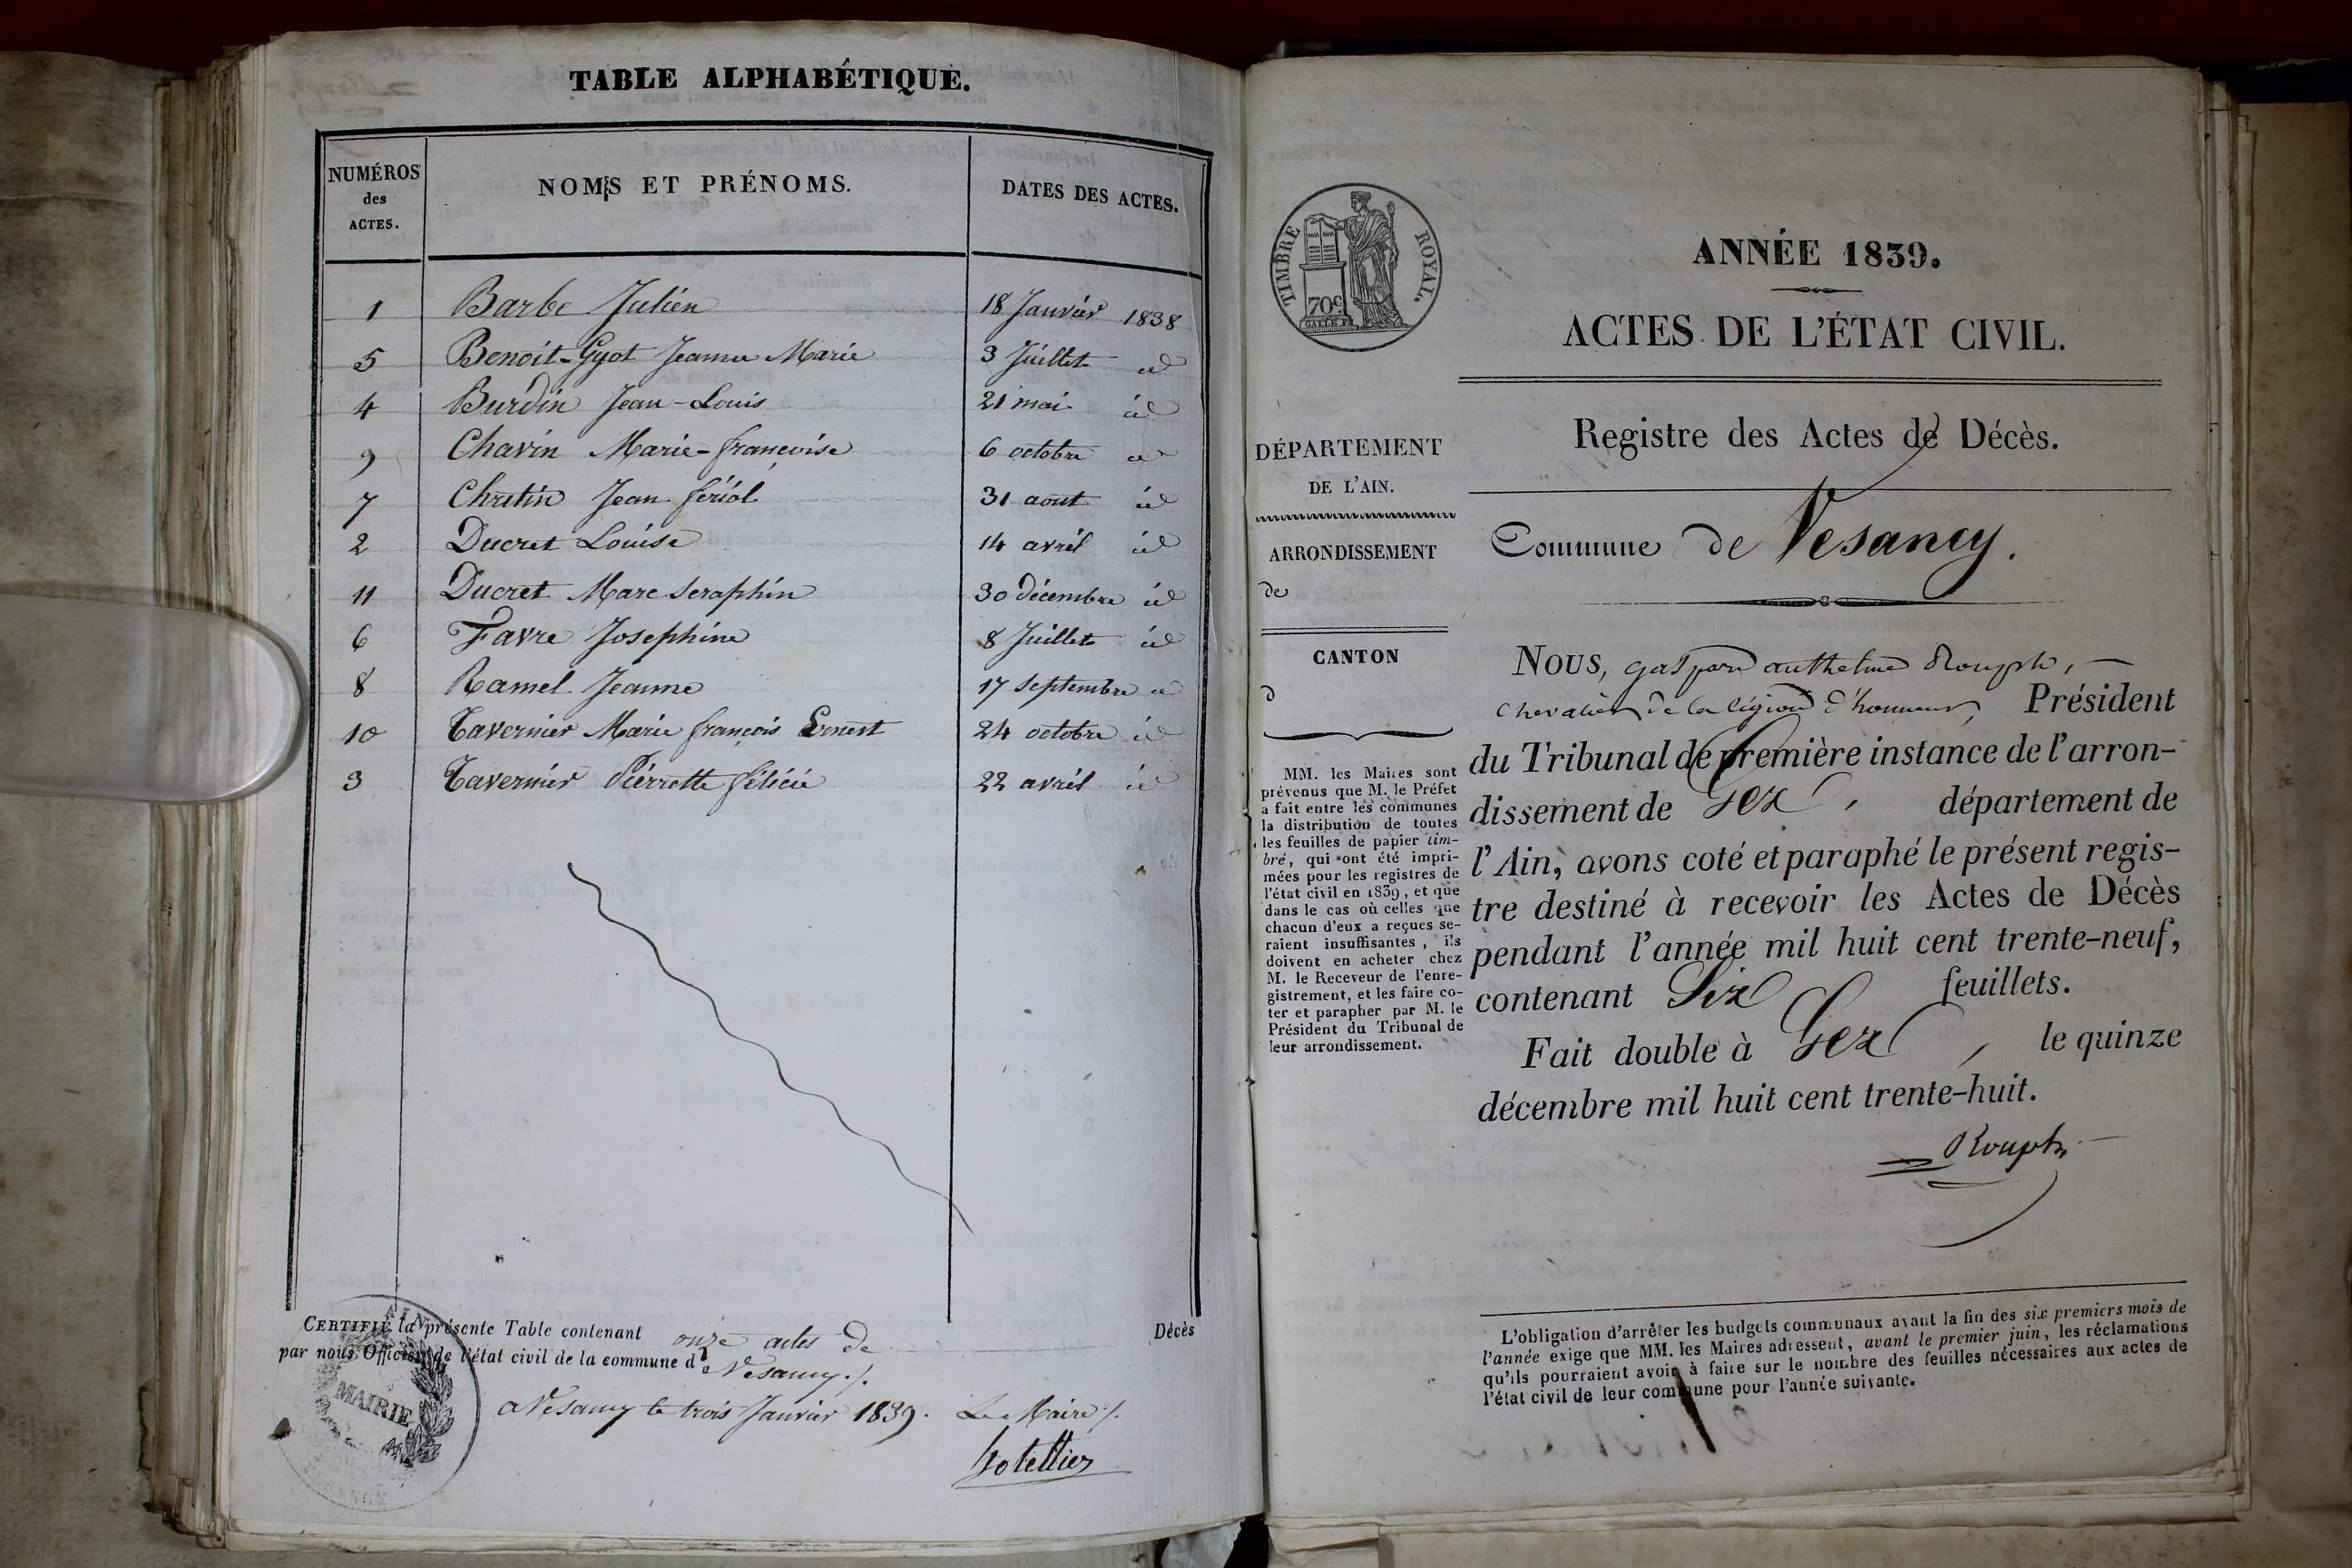 TABLE ALPHABÉTIQUE.
NUMÉROS des ACTES. NOMS ET PRÉNOMS. DATES DES ACTES.
1 Barbe Julien 18 Janvier 1838
5 Benoit-Gyot Jeanne Marie 3 Juillet id
4 Burdin Jean-Louis 21 mai id
9 Chavin Marie-françoise 6 octobre id
7 Chretin Jean fériol 31 aout id
2 Ducret Louise 14 avril id
11 Ducret Marc Seraphin 30 décembre id
6 Favre Josephine 8 Juillet id
8 Ramel Jeanne 17 Septembre id
10 Tavernier Marie françois Ernest 24 octobre id
3 Tavernier Pierrette félicie 22 avril id
CERTIFIÉ la présente Table contenant onze actes de Décès
par nous Officier de l'état civil de la commune de Vesancy ./.
a Vesancy le trois Janvier 1839. Le Maire ./.
hotellier
AIN
MAIRIE
TIMBRE ROYAL.
70c.
ANNÉE 1839.
ACTES DE L'ÉTAT CIVIL.
Registre des Actes de Décès.
Commune de Vesancy.
DÉPARTEMENT
DE L'AIN.
ARRONDISSEMENT
de
CANTON
d
MM. les Maires sont
prévenus que M. le Préfet
a fait entre les communes
la distribution de toutes
les feuilles de papier tim-
bré, qui ont été impri-
mées pour les registres de
l'état civil en 1839, et que
dans le cas où celles que
chacun d'eux a reçues se-
raient insuffisantes, ils
doivent en acheter chez
M. le Receveur de l'enre-
gistrement, et les faire co-
ter et parapher par M. le
Président du Tribunal de
leur arrondissement.
NOUS, gaspard anthelme Rouph,
chevalier de la légion d'honneur, Président
du Tribunal de première instance de l'arron-
dissement de Gex, département de
l'Ain, avons coté et paraphé le présent regis-
tre destiné à recevoir les Actes de Décès
pendant l'année mil huit cent trente-neuf,
contenant Six feuillets.
Fait double à Gex, le quinze
décembre mil huit cent trente-huit.
Rouph
L'obligation d'arrêter les budgets communaux avant la fin des six premiers mois de
l'année exige que MM. les Maires adressent, avant le premier juin, les réclamations
qu'ils pourraient avoir à faire sur le nombre des feuilles nécessaires aux actes de
l'état civil de leur commune pour l'année suivante.